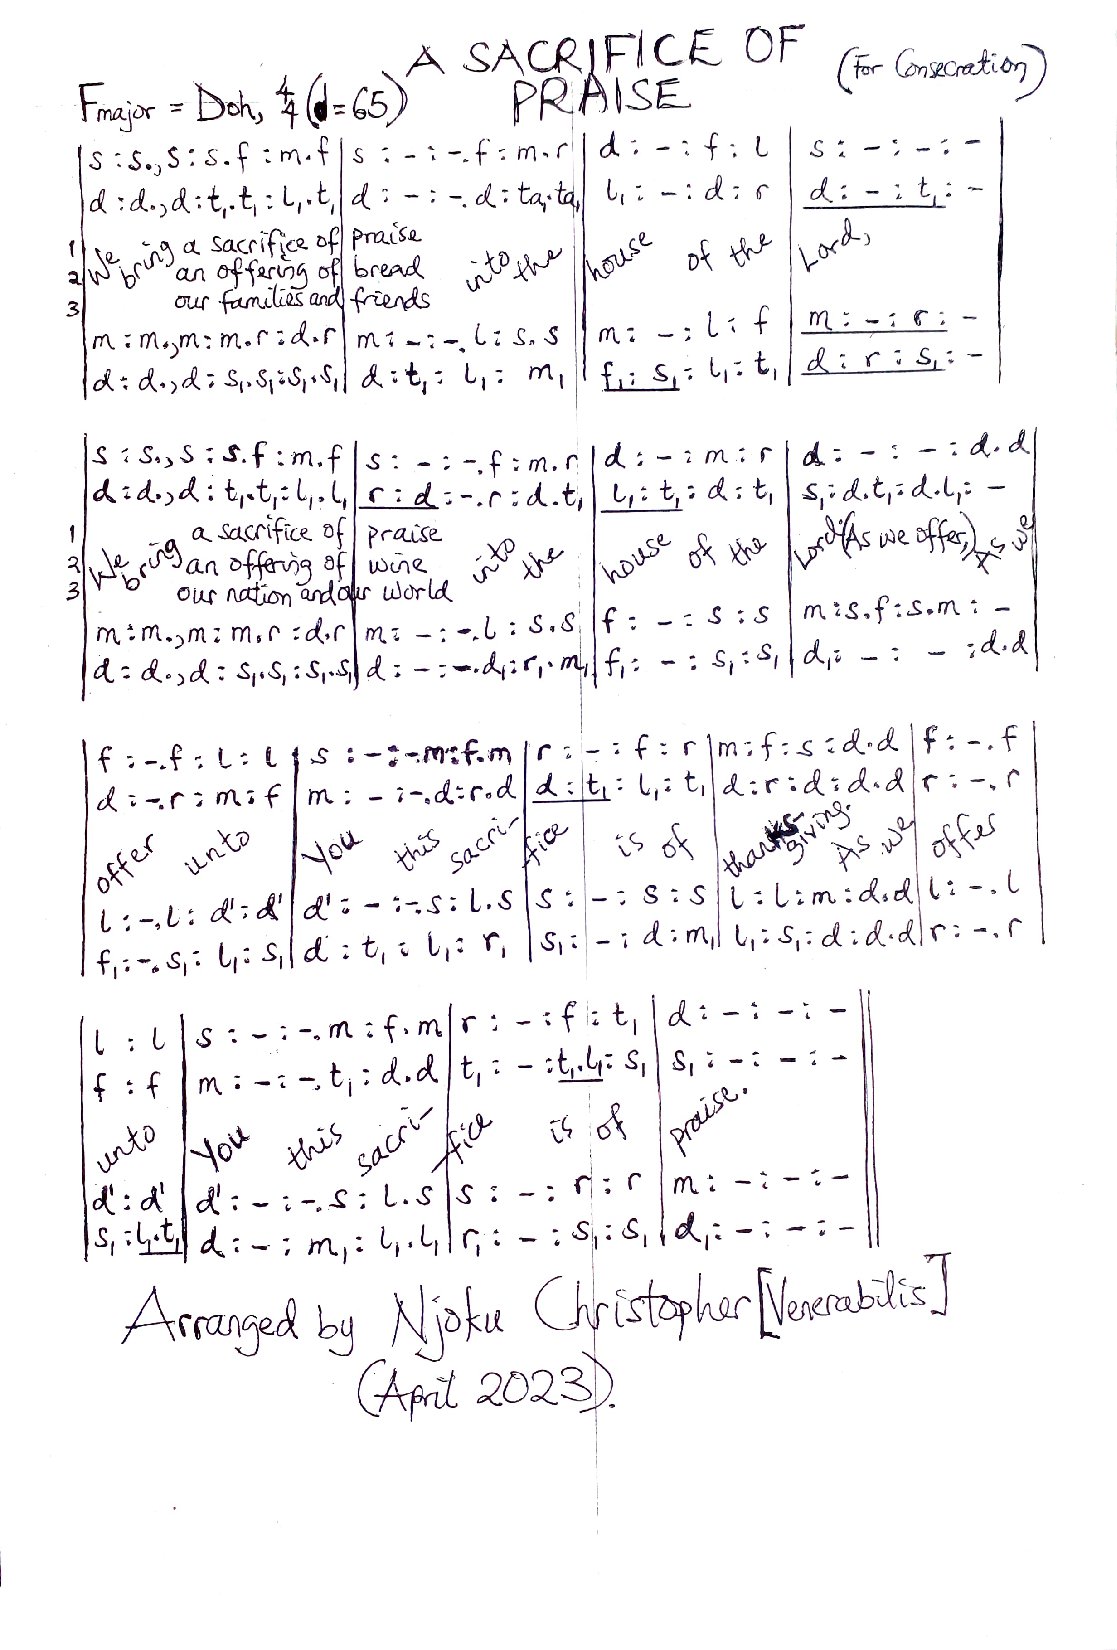 A SACRIFICE OF
PRAISE
(For Consecration)
Fmajor = Doh, 4/4 (d=65)
|s :s.,s :s.f :m.f|s :- :-.f :m.r|d :- :f :l|s :- :- :-|
|d :d.,d :t₁.t₁ :l₁.t₁|d :- :-.d :ta₁.ta₁|l₁ :- :d :r|d :- :t₁ :-|
1 We bring a sacrifice of praise into the house of the Lord,
2 an offering of bread
3 our families and friends
|m :m.,m :m.r :d.r|m :- :-.l :s.s|m :- :l :f|m :- :r :-|
|d :d.,d :s₁.s₁ :s₁.s₁|d :t₁ :l₁ :m₁|f₁ :s₁ :l₁ :t₁|d :r :s₁ :-|
|s :s.,s :s.f :m.f|s :- :-.f :m.r|d :- :m :r|d :- :- :d.d|
|d :d.,d :t₁.t₁ :l₁.l₁|r :d :-.r :d.t₁|l₁ :t₁ :d :t₁|s₁ :d.t₁ :d.l₁ :-|
1 We bring a sacrifice of praise into the house of the Lord (As we offer,) As we
2 an offering of wine
3 our nation and our world
|m :m.,m :m.r :d.r|m :- :-.l :s.s|f :- :s :s|m :s.f :s.m :-|
|d :d.,d :s₁.s₁ :s₁.s₁|d :- :-.d₁ :r₁.m₁|f₁ :- :s₁ :s₁|d₁ :- :- :d.d|
|f :-.f :l :l|s :- :-.m :f.m|r :- :f :r|m :f :s :d.d|f :-.f|
|d :-.r :m :f|m :- :-.d :r.d|d :t₁ :l₁ :t₁|d :r :d :d.d|r :-.r|
offer unto You this sacri-fice is of thanks-giving. As we offer
|l :-.l :d' :d'|d' :- :-.s :l.s|s :- :s :s|l :l :m :d.d|l :-.l|
|f₁ :-.s₁ :l₁ :s₁|d :t₁ :l₁ :r₁|s₁ :- :d :m₁|l₁ :s₁ :d :d.d|r :-.r|
|l :l|s :- :-.m :f.m|r :- :f :t₁|d :- :- :-||
|f :f|m :- :-.t₁ :d.d|t₁ :- :t₁.l₁ :s₁|s₁ :- :- :-||
unto You this sacri-fice is of praise.
|d' :d'|d' :- :-.s :l.s|s :- :r :r|m :- :- :-||
|s₁ :l₁.t₁|d :- :m₁ :l₁.l₁|r₁ :- :s₁ :s₁|d₁ :- :- :-||
Arranged by Njoku Christopher [Venerabilis]
(April 2023).